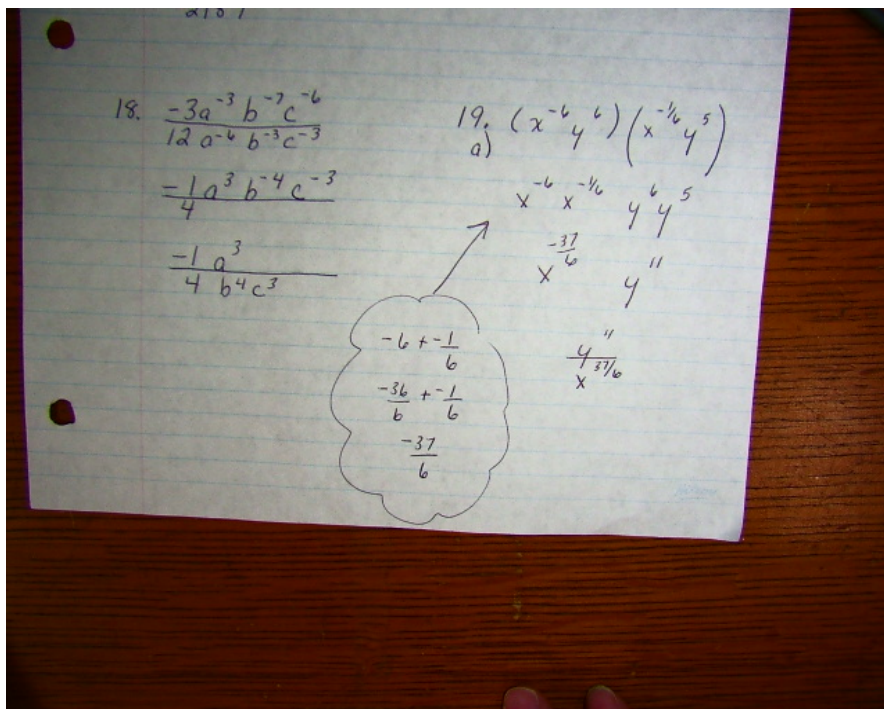 18. -3a⁻³ b⁻⁷ c⁻⁶
12 a⁻⁶ b⁻³ c⁻³
-1 a³ b⁻⁴ c⁻³
4
-1 a³
4 b⁴ c³
19. (x⁻⁶ y⁶) (x^-1/6 y⁵)
a)
x⁻⁶ x^-1/6 y⁶ y⁵
x^-37/6 y¹¹
y¹¹
x^37/6
-6 + -1/6
-36/6 + -1/6
-37/6